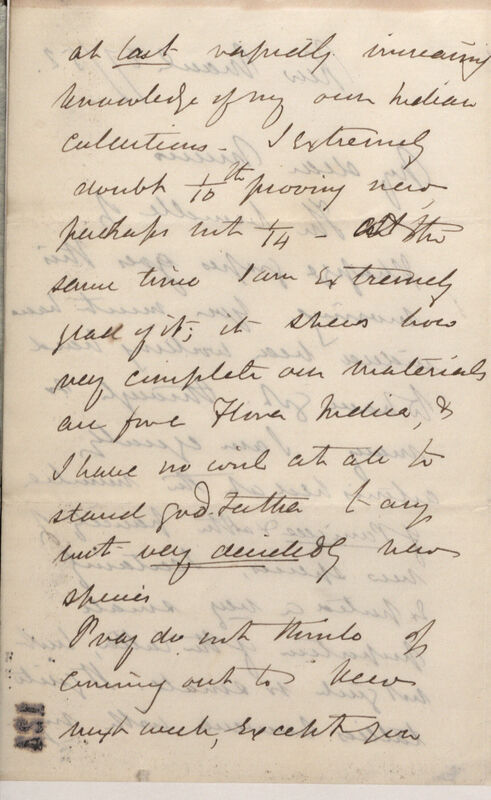 at last rapidly increasing
knowledge of my own Indian
collections - I extremely
doubt 1/10th proving new,
perhaps not 1/4 - At the
same time I am extremely
glad of it; it shews how
very complete our materials
are for a Flora Indica, &
I have no wish at all to
stand godfather to any
not very decidedly new
species
Pray do not think of
coming out to Kew
next week, except you